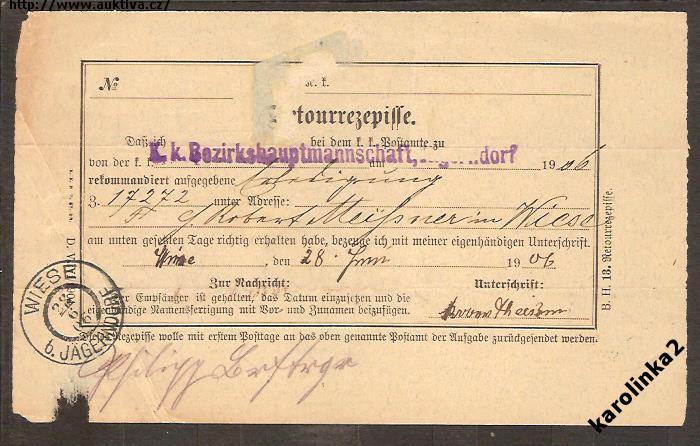 http://www.auktiva.cz/
№
k.
Retourrezepisse.
Daß ich bei dem k. k. Postamte zu
K. k. Bezirkshauptmannschaft, Jägerndorf
von der k. k. am 1906
rekommandiert aufgegebene Erledigung
Z. 17272 unter Adresse: Robert Meißner in Wiese
am unten gesetzten Tage richtig erhalten habe, bezeuge ich mit meiner eigenhändigen Unterschrift.
Wiese, den 28. Juni 1906
Zur Nachricht: Unterschrift:
Der Empfänger ist gehalten, das Datum einzusetzen und die
eigenhändige Namensfertigung mit Vor- und Zunamen beizufügen.
Diese Retourrezepisse wolle mit erstem Posttage an das oben genannte Postamt der Aufgabe zurückgesendet werden.
Philipp
B. H. 13. Retourrezepisse.
WIESE
b. JÄGERNDORF
karolinka2